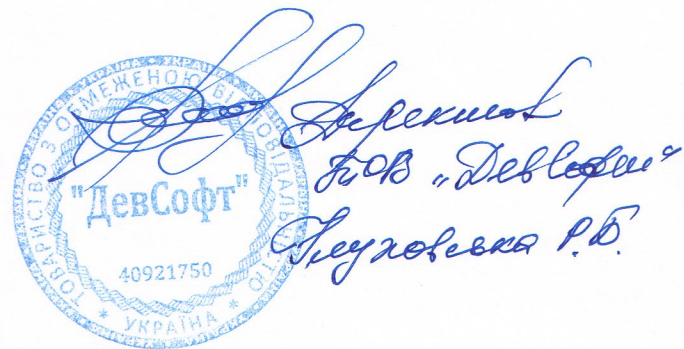 УКРАЇНА * УКРАЇНА * УКРАЇНА
ТОВАРИСТВО З ОБМЕЖЕНОЮ ВІДПОВІДАЛЬНІСТЮ
"ДевСофт"
40921750
* УКРАЇНА *
Директор
ТОВ „ДевСофт“
Глуховська Р.Б.